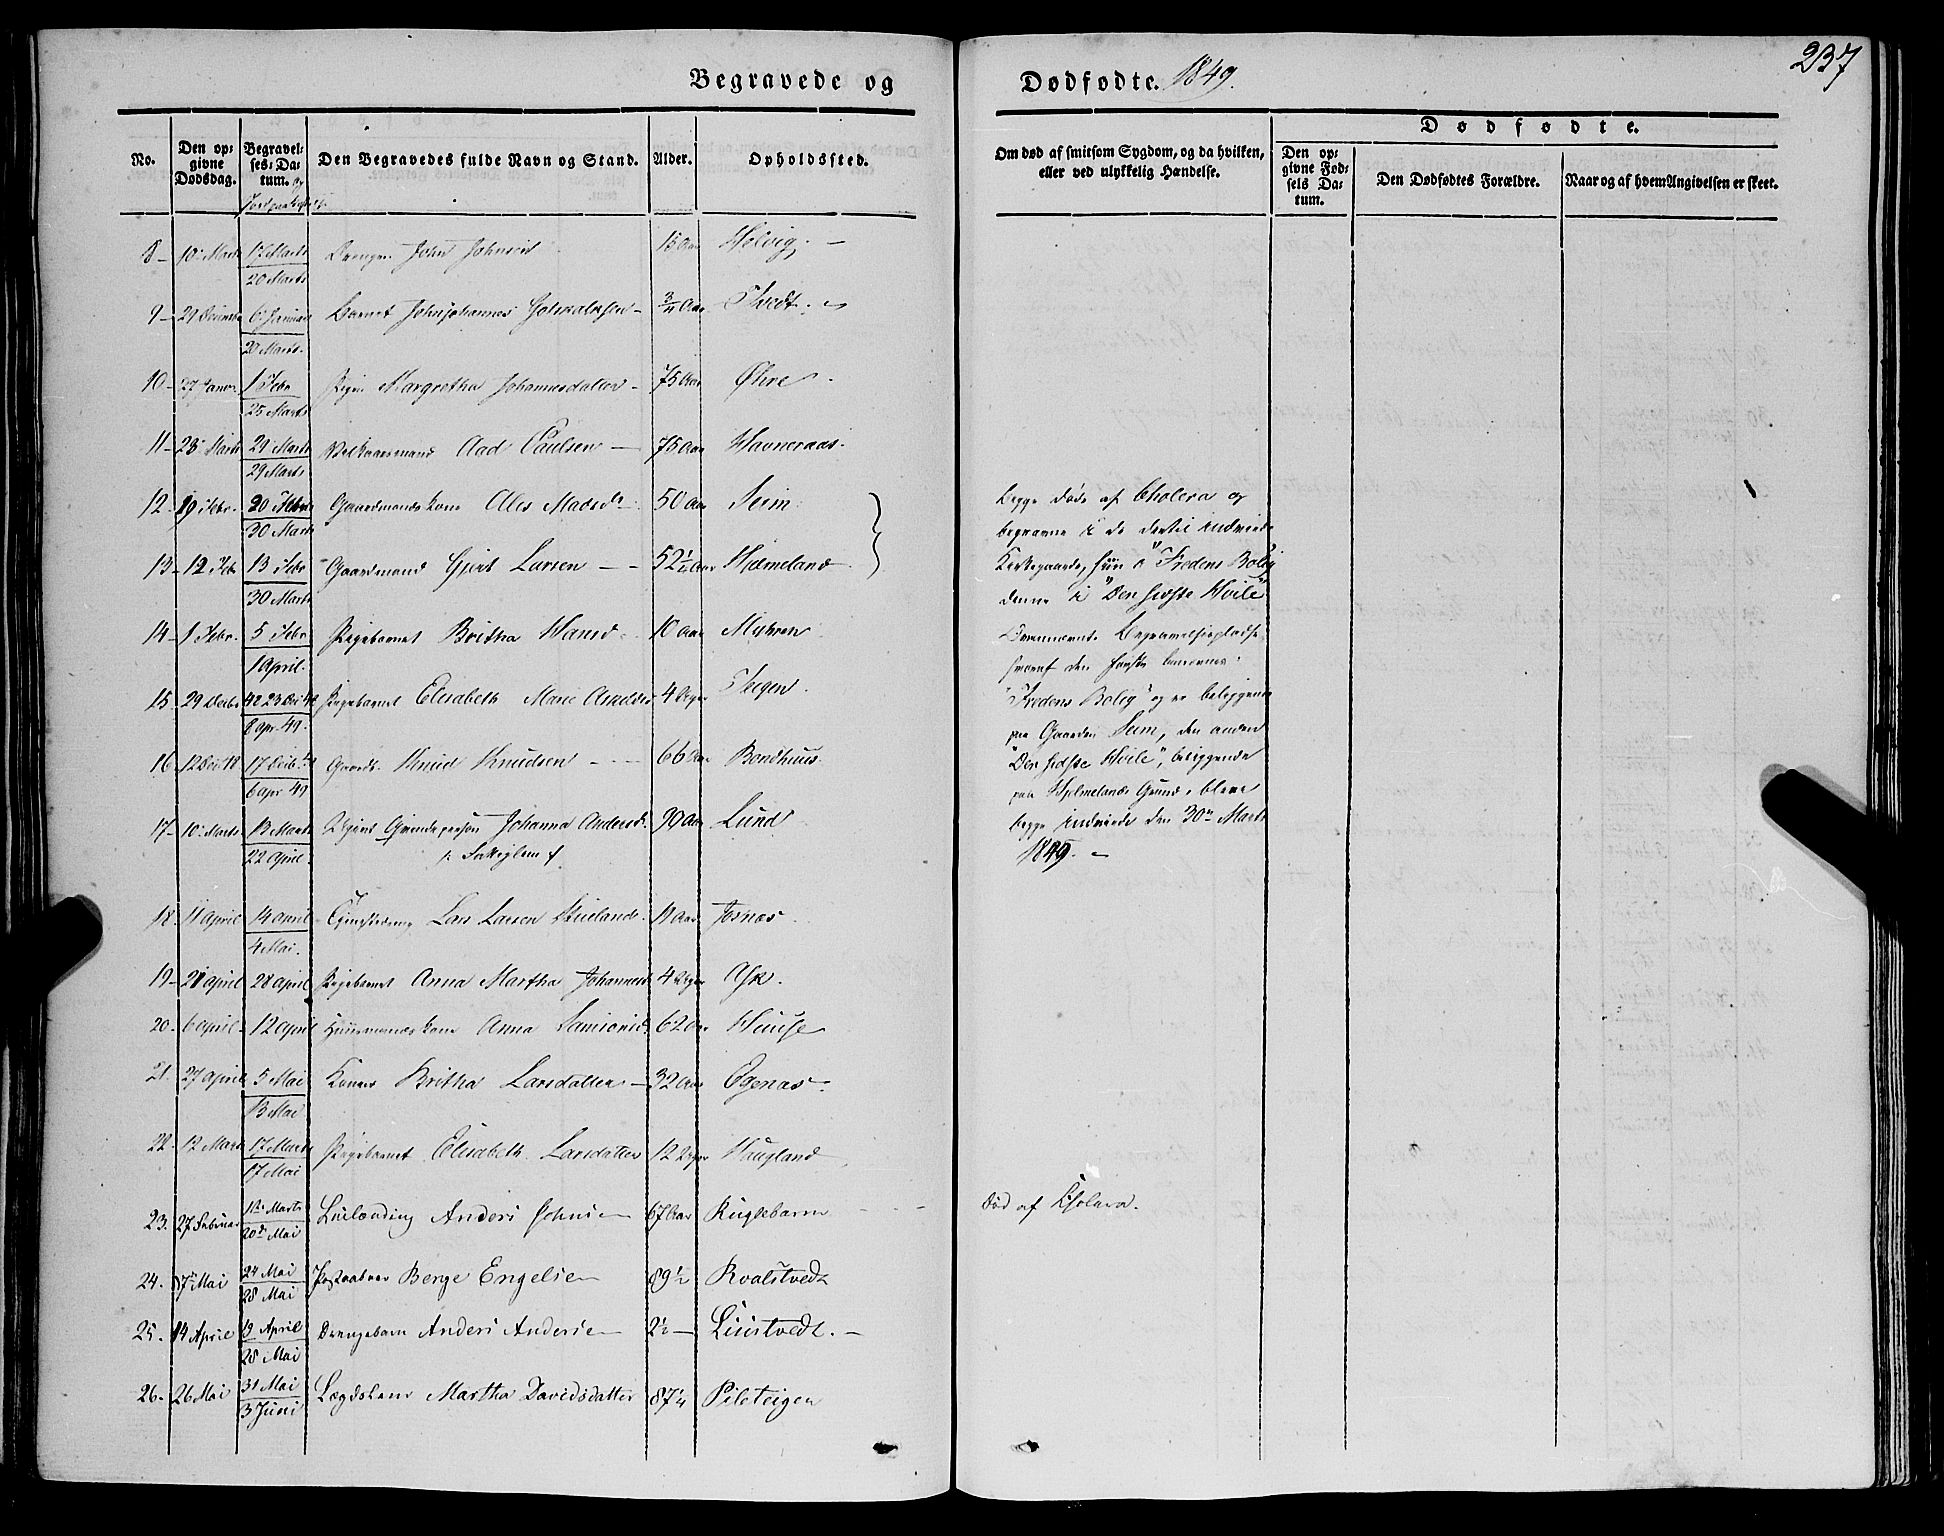 237
Begravede og Dødfødte. 1849.
No. Den opgivne Dødsdag. Begravelses-Datum. og Jordpaakastelse Den Begravedes fulde Navn og Stand. Alder. Opholdssted. Om død af smitsom Sygdom, og da hvilken, eller ved ulykkelig Hændelse. Dødfødte. Den opgivne Fødsels Datum. Den Dødfødtes Forældre. Naar og af hvem Angivelsen er skeet.
8 10 Marts 17 Marts / 20 Marts Drengen John Johnsen 15 Aar Helvig
9 29 Decembr 6 Januar / 20 Marts Barnet Johannes 3/4 Aar Tvedt
10 27 Januar 1 Febr / 25 Marts Pigen Margretha Johannesdatter 75 Aar Øhre
11 23 Marts 29 Marts / 29 Marts Aad Paulsen 75 Aar Havneraas
12 19 Febr. 20 Febr / 30 Marts Gaardmandskone Ales Madsd. 50 Aar Seim
13 12 Febr 13 Febr / 30 Marts Gaardmand Gjert Larsen 52 1/2 Aar Hjelmeland
14 1 Febr. 5 Febr / 1 April. Pigebarnet Britha Hansd. 10 Aar Myhren
15 29 Decbr 23 Dec 48 / 8 apr. 49. Pigebarnet Elisabeth Marie 4 Uger Teigen
16 12 Dec 48 17 Decbr / 6 apr 49 Gaardm. Knud Knudsen 66 Aar Bondhuus
17 10 Marts 13 Marts / 22 April Johanna Andersd. 90 Aar Lund
18 11 April 14 April / 4 Mai. Lars Larsen 11 Aar Fosnæs
19 21 April 28 April Pigebarnet Anna Martha Johannesd. 4 Uger Ask.
20 6 April 12 April Huusmandskone Anna Samsonsd. 62 Aar Huuse
21 27 April 5 Mai / 13 Mai Konen Britha Larsdatter 32 Aar Egenæs
22 12 Marts 17 Marts / 17 Mai Pigebarnet Elisabeth Larsdatter 12 Uger Haugland
23. 27 Februar 1ste Marts / 20de Mai Anders Johnsen 67 Aar
24. 17 Mai 24 Mai / 28 Mai Berge Engelsen 89 1/2 Kvalstvedt
25. 14 April 19 April / 28 Mai Drengebarn Anders Andersen 2 1/2 Liustvedt.
26. 26 Mai 31 Mai / 3 Juni Lægdslem Martha Davidsdatter 87 1/4 Pilsteigen
Begge døde af Cholera og
begravne i de dertil indviede
Kirkegaarde, hun i "Fredens Bolig"
denne i "Den sidste Hvile"
Ovennævnte Begravelsespladse
hvoraf den første benævnes:
"Fredens Bolig" og er beliggende
paa Gaarden Seim, den anden
"Den sidste Hvile", beliggende
paa Hjelmelands Grund, bleve
begge indviede den 30te Marts
1849.
Død af Cholera.